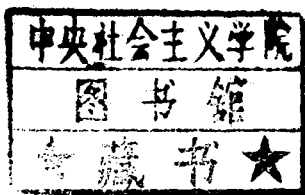 中央社会主义学院
图书馆
藏书★